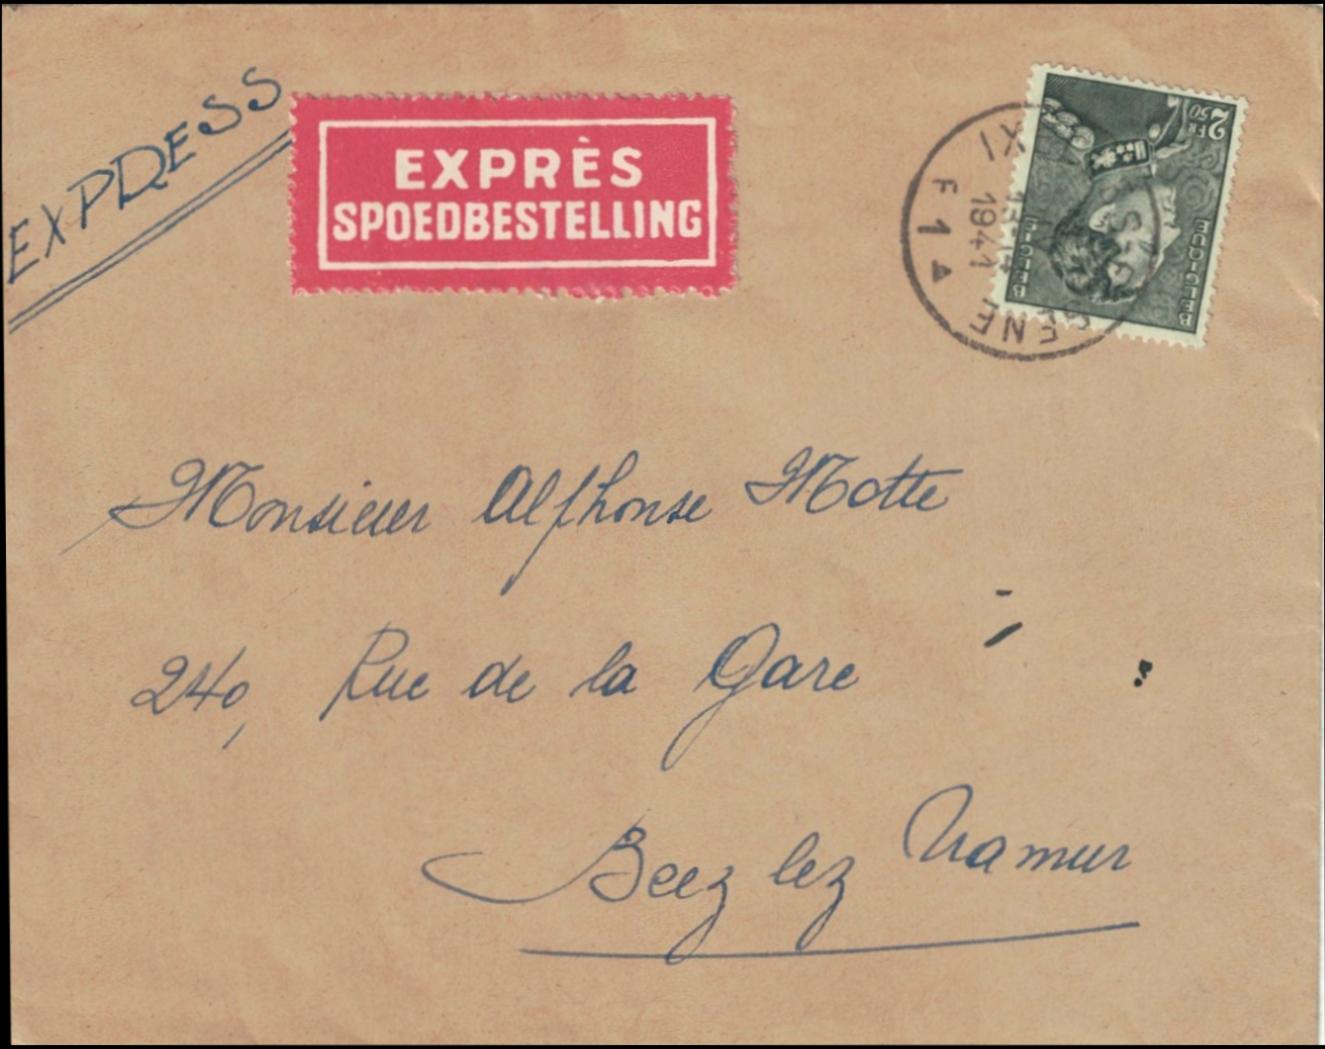 EXPRESS
EXPRÈS
SPOEDBESTELLING
2 FR 50
BELGIE
BELGIQUE
XI
1941
F1A
GENE
Monsieur Alphonse Motte
240, Rue de la Gare
Beez lez Namur